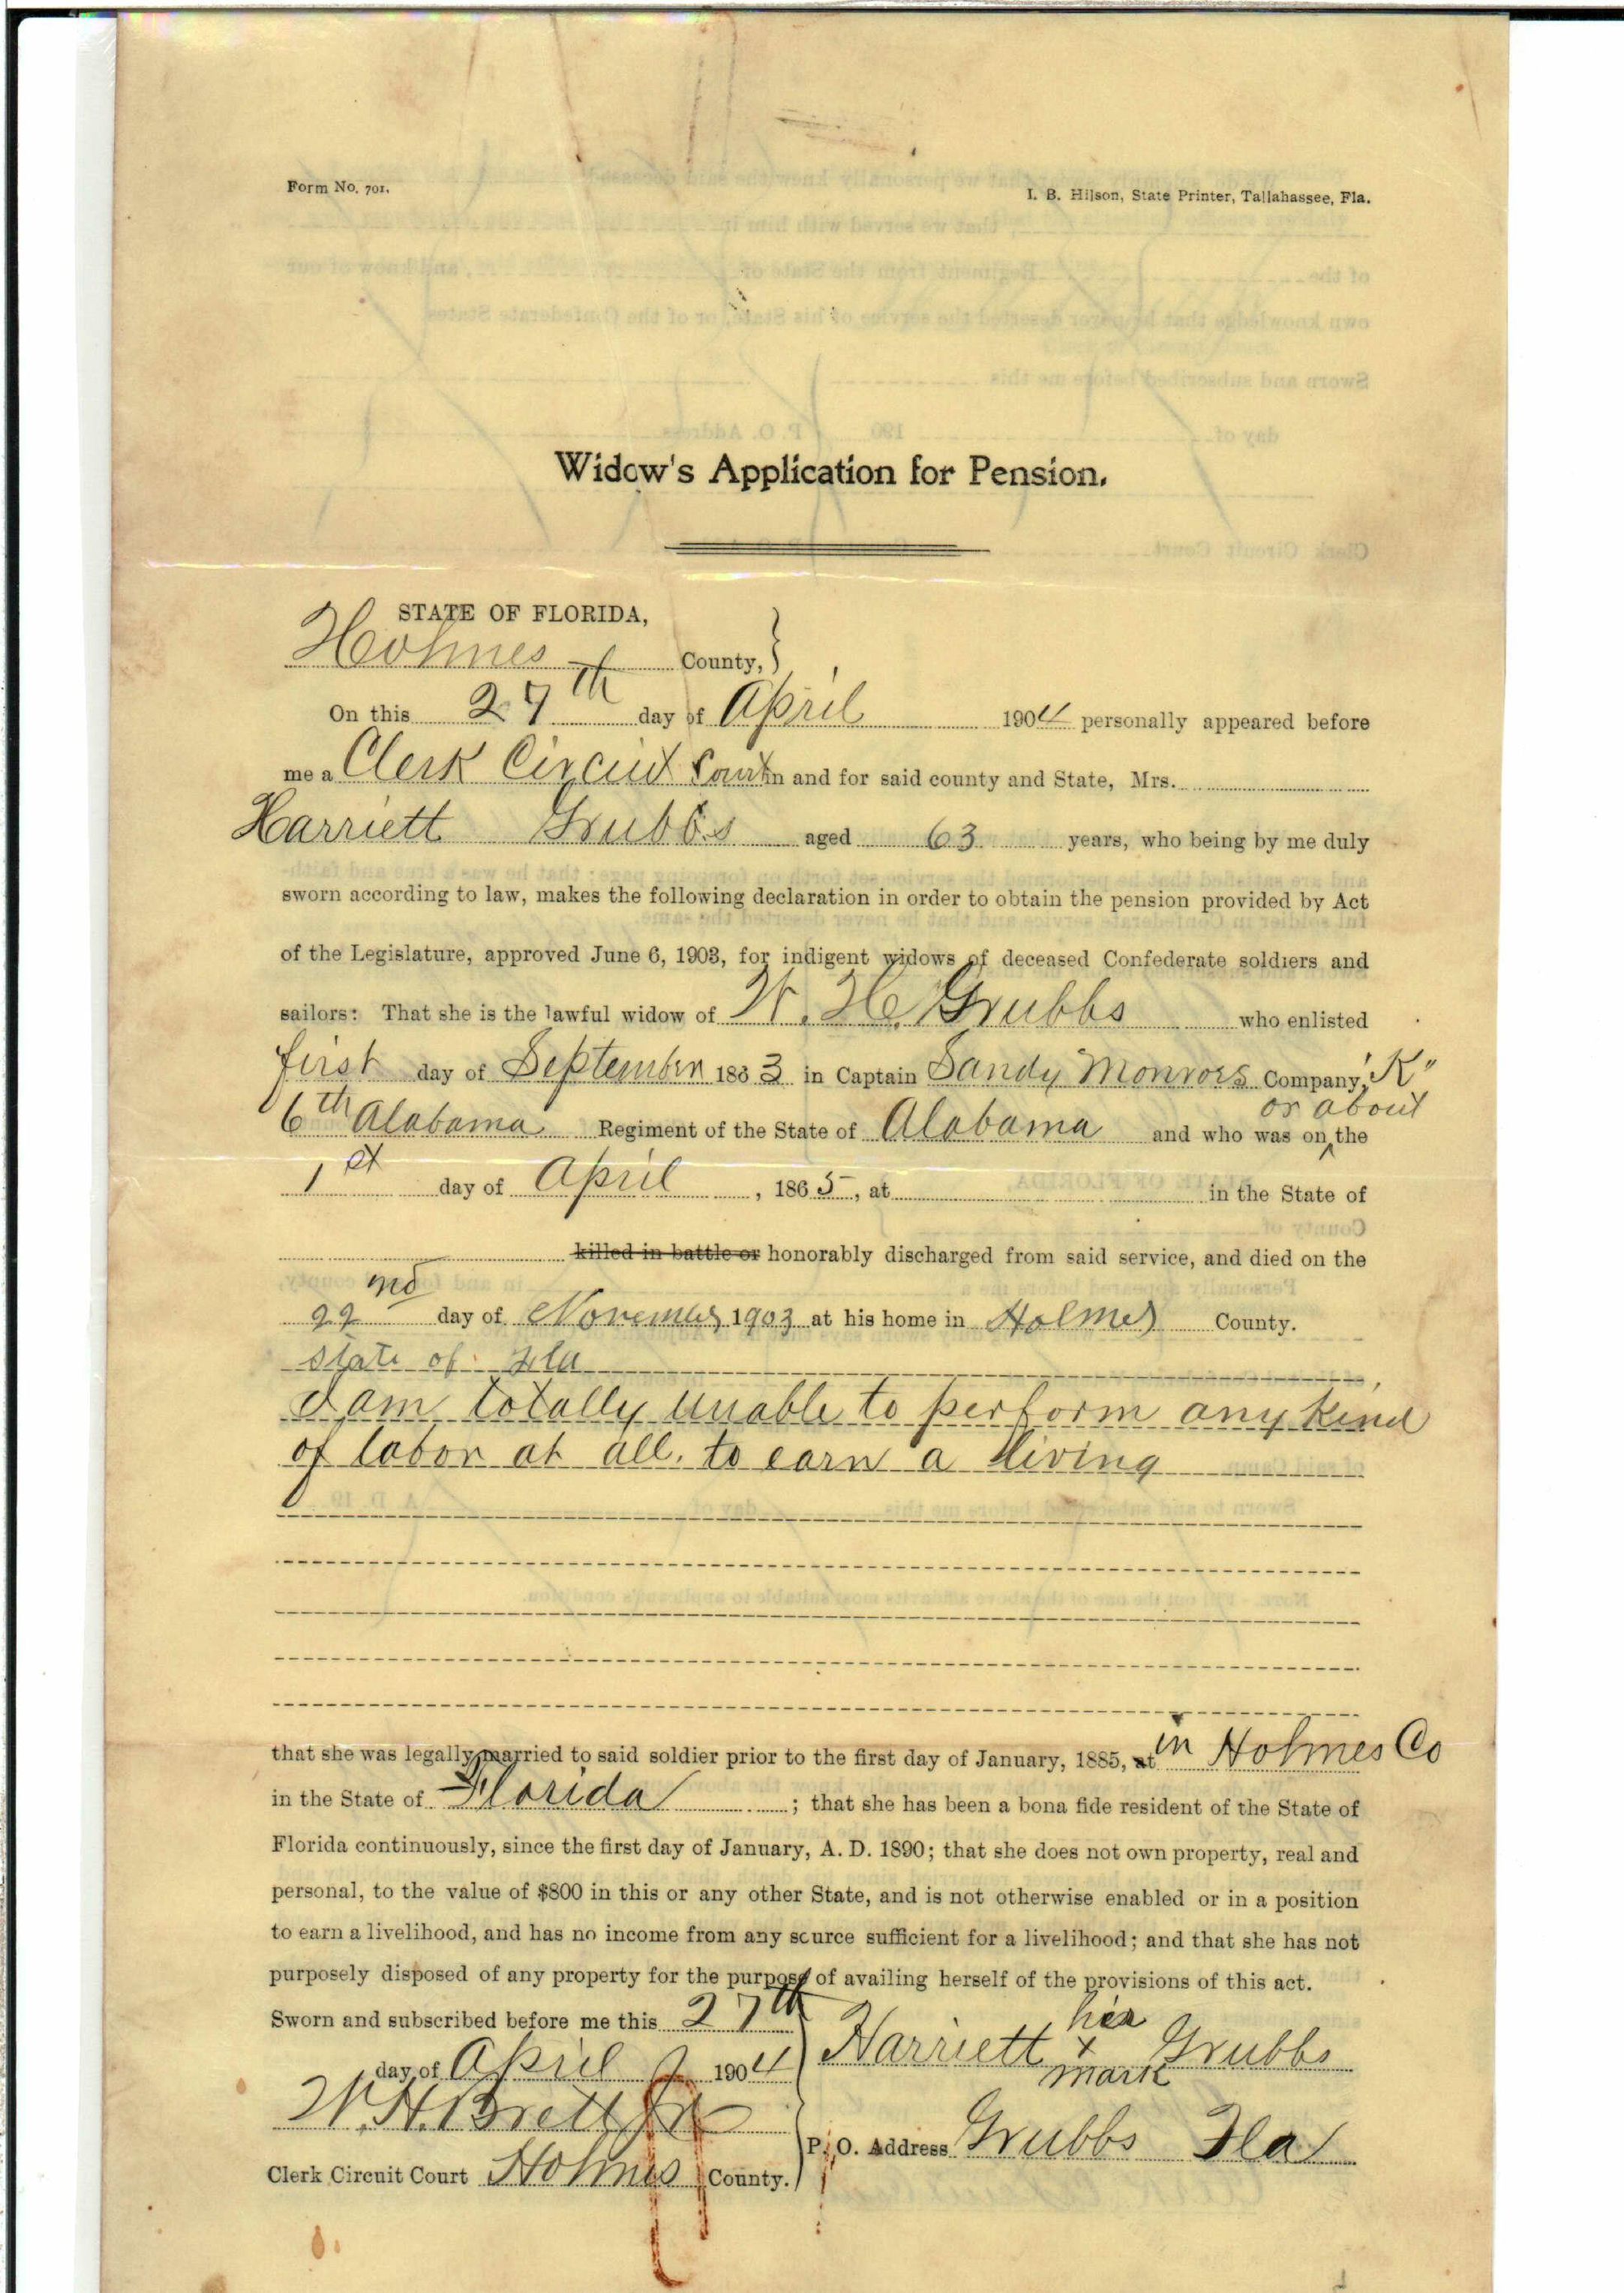 Form No. 701.
I. B. Hilson, State Printer, Tallahassee, Fla.
Widow's Application for Pension.
STATE OF FLORIDA,
Holmes County,
On this 27th day of April 1904 personally appeared before
me a Clerk Circuit Court in and for said county and State, Mrs.
Harriett Grubbs aged 63 years, who being by me duly
sworn according to law, makes the following declaration in order to obtain the pension provided by Act
of the Legislature, approved June 6, 1903, for indigent widows of deceased Confederate soldiers and
sailors: That she is the lawful widow of W. H. Grubbs who enlisted
first day of September 1863 in Captain Sandy Monroes Company, "K"
6th Alabama Regiment of the State of Alabama and who was on or about the
1st day of April, 1865, at in the State of
killed in battle or honorably discharged from said service, and died on the
22nd day of November 1903 at his home in Holmes County.
state of Fla
I am totally unable to perform any kind
of labor at all. to earn a living
that she was legally married to said soldier prior to the first day of January, 1885, at in Holmes Co
in the State of Florida; that she has been a bona fide resident of the State of
Florida continuously, since the first day of January, A. D. 1890; that she does not own property, real and
personal, to the value of $800 in this or any other State, and is not otherwise enabled or in a position
to earn a livelihood, and has no income from any source sufficient for a livelihood; and that she has not
purposely disposed of any property for the purpose of availing herself of the provisions of this act.
Sworn and subscribed before me this 27th
day of April 1904
W. H. Brett Jr
Clerk Circuit Court Holmes County.
her
Harriett x Grubbs
mark
P. O. Address Grubbs Fla